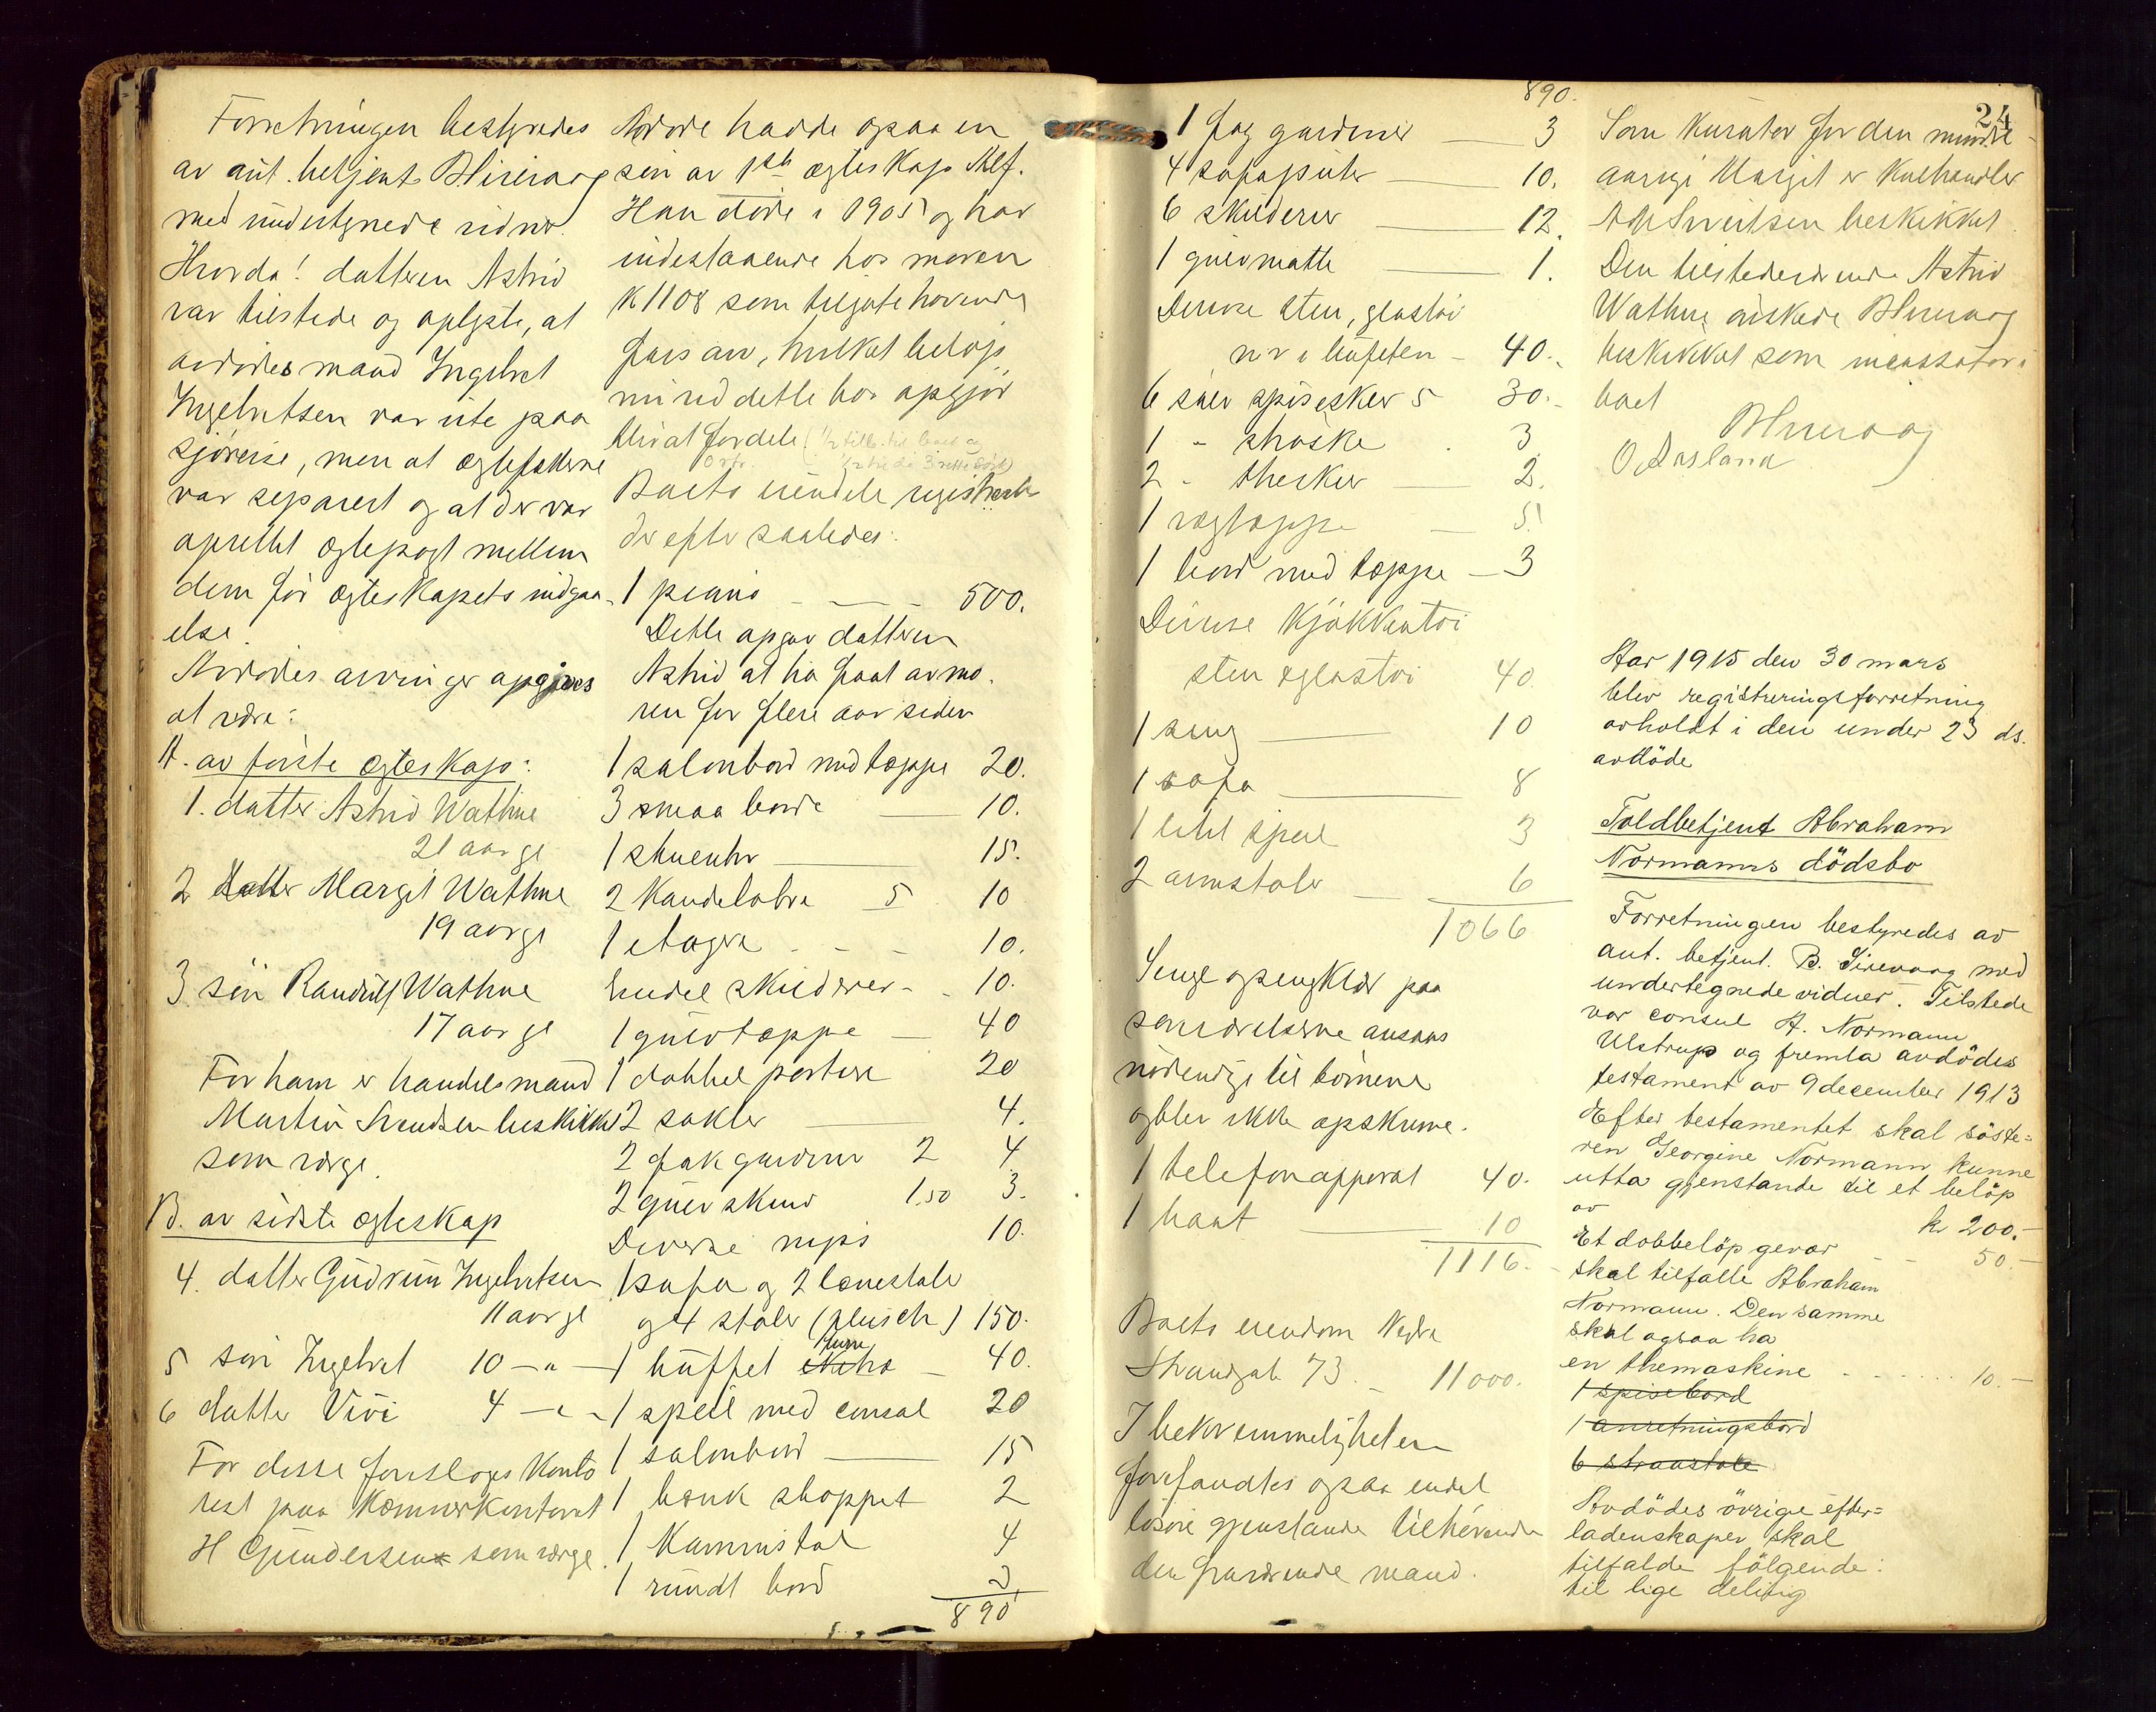 Forretningen bestyredes
av aut. betjent B Sirevaag
med undertegnede vidner.
Hvorda! datteren Astrid
var tilstede og oplyste, at
avdødes mand Ingelret
Ingebretsen var ute paa
sjøreise, men at ægtefellerne
var separert og at der var
oprettet ægtepagt mellem
dem før ægteskapets indgaa-
else.
Avdødes arvinger opgives
at være:
A. av første ægteskap:
1. datter Astrid Wathne
21 aar gl
2 datter Margit Wathne
19 aar gl
3 søn Randulf Wathne
17 aar gl
For ham er handelsmand
Martin Svendsen beskikket
som værge.
B. av sidste ægteskap
4. datter Gudrun Ingebretsen
11 aar gl
5 søn Ingebret 10 - " -
6 datter Vivi 4 - " -
For disse foreslages konto
rist paa Kæmnerkontoret
H Gundersen som værge.
Avdøde hadde ogsaa en
søn av 1ste ægteskap Alf.
Han døde i 1905 og har
indestaaende hos moren
K 1108 som tilgodehavende
farsarv, hvilket beløp
nu ved dette bos opgjør
blir at fordele
Boets eiendele registrertes
derefter saaledes:
1 piano - - - 500.
Dette opgav datteren
Astrid at ha faat av mo-
ren for flere aar siden
1 salonbord med tæppe 20.
3 smaa borde 10.
1 stueuhr 15.
2 Kandelabre 5 10
1 etagere - - - 10.
Endel skilderier - - 10.
1 gulvtæppe 40
1 dobbel portiere 20
2 sokler 4.
2 fak gardiner 2 4
2 gulvskind 1.50 3.
Diverse nips 10.
1 sofa og 2 lænestole
og 4 stoler (plüsch) 150.
1 büffet 40.
1 speil med consol 20
1 salonbord 15
1 bænk stoppet 2
1 Kammistol 4
1 rundt bord 2
890
24
890.
1 fag gardiner 3
4 sofaputer 10.
6 skilderier 12.
1 gulvmatte 1.
Diverse sten, glastøi
m v i büfeten - 40.
6 sølv spiseskeer 5 30.-
1 - strøske . 3
2 - theskeer 2.
1 vægtæppe 5.
1 bord med tæppe - 3
Diverse Kjøkkentøi
sten & glastøi 40.
1 seng 10
1 sofa 8
1 litet speil 3
2 armstoler 6
1066
Senge og sengklær paa
soveværelserne ansaaes
nødvendige til børnene
og blev ikke opskrevne.
1 telefonapparat 40.
1 baat 10
1116.-
Boets eiendom Nedre
Strandgate 73. - 11000.
I bekvemmeligheten
forefandtes ogsaa endel
løsøre gjenstande tilhørende
den fraværende mand.
Som kurator for den mindre-
aarige Margit er Kulhandler
Sivertsen beskikket.
Den tilstedeværende Astrid
Wathne ønskede B Sirevaag
beskikket som incassator i
boet
B Sirevaag
O. Aasland
Aar 1915 den 30 mars
blev registreringsforretning
avholdt i den under 23 ds.
avdöde
Toldbetjent Abraham
Normanns dödsbo
Forretningen bestyredes av
aut. betjent. B. Sirevaag med
undertegnede vidner. Tilstede
var consul A. Normann
Ulstrup og fremla avdödes
testament av 9 december 1913
Efter testamentet skal söste=
ren Georgine Normann kunne
utta gjenstande til et belöp
av kr 200.-
Et dobbelöp gevær - - 50.-
skal tilfalle Abraham
Normann. Den samme
skal ogsaa ha
en themaskine - - - - - - 10.-
1 spisebord
1 anretningsbord
6 straastole
Avdödes övrige efter=
ladenskaper skal
tilfalde fölgende:
til lige deling